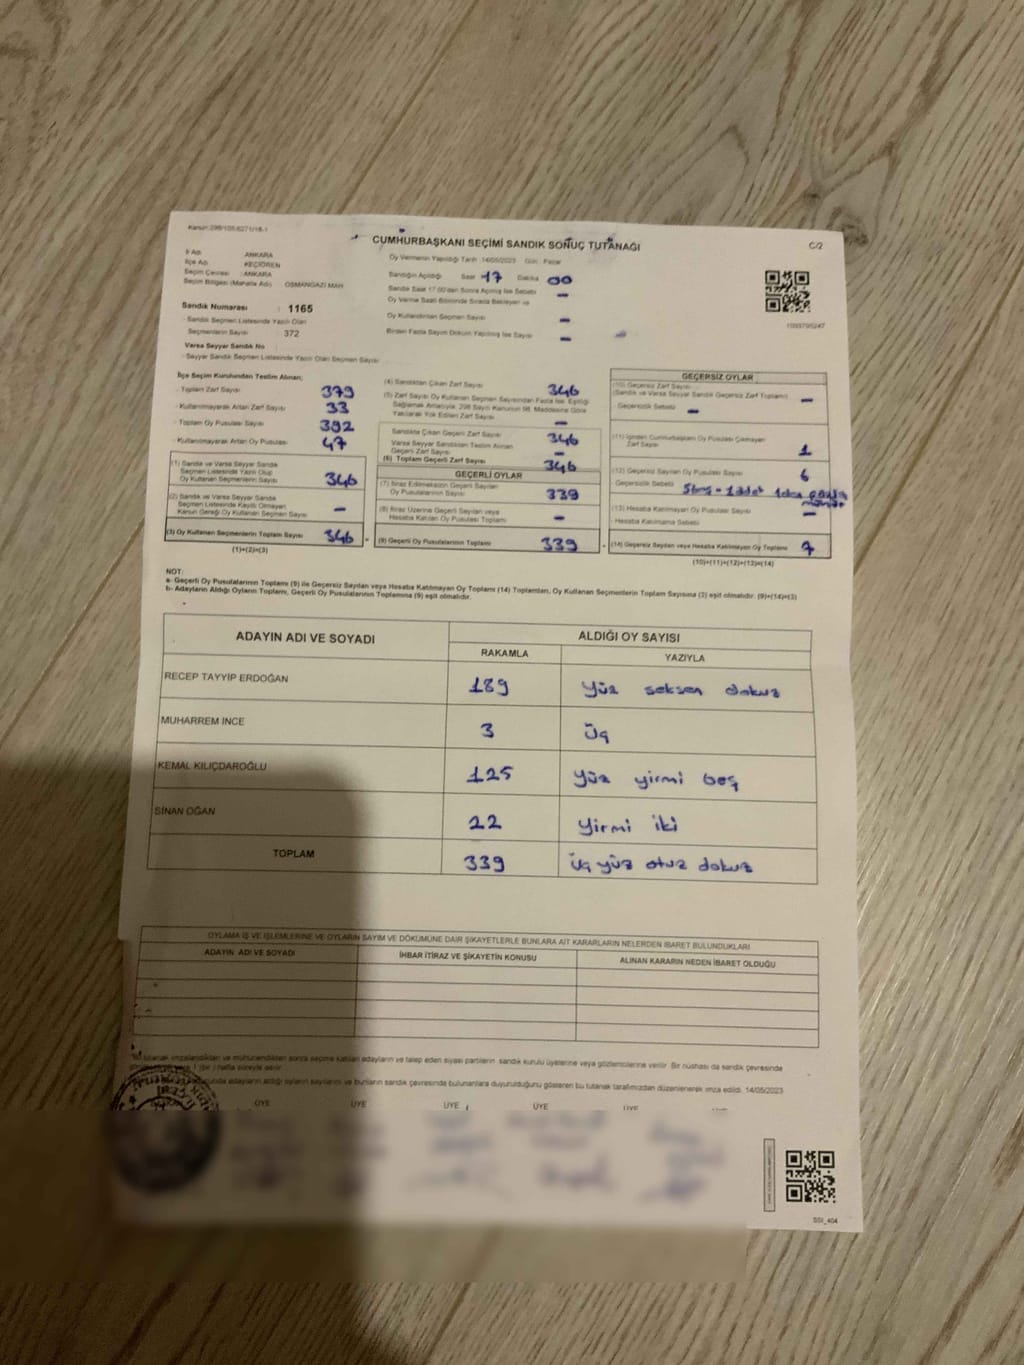 Kanun:298/105,6271/16-1
CUMHURBAŞKANI SEÇİMİ SANDIK SONUÇ TUTANAĞI
C/2
İl Adı : ANKARA
İlçe Adı : KEÇİÖREN
Seçim Çevresi : ANKARA
Seçim Bölgesi (Mahalle Adı) OSMANGAZİ MAH
Sandık Numarası : 1165
- Sandık Seçmen Listesinde Yazılı Olan
Seçmenlerin Sayısı : 372
Varsa Seyyar Sandık No
- Seyyar Sandık Seçmen Listesinde Yazılı Olan Seçmen Sayısı
Oy Vermenin Yapıldığı Tarih :14/05/2023 Gün : Pazar
Sandığın Açıldığı Saat 17 Dakika 00
Sandık Saat 17.00'den Sonra Açılmış İse Sebebi –
Oy Verme Saati Bitiminde Sırada Bekleyen ve
Oy Kullandırılan Seçmen Sayısı –
Birden Fazla Sayım Döküm Yapılmış İse Sayısı –
1093795247
İlçe Seçim Kurulundan Teslim Alınan;
- Toplam Zarf Sayısı 379
- Kullanılmayarak Artan Zarf Sayısı 33
- Toplam Oy Pusulası Sayısı 392
- Kullanılmayarak Artan Oy Pusulası 47
(1) Sandık ve Varsa Seyyar Sandık
Seçmen Listesinde Yazılı Olup
Oy Kullanan Seçmenlerin Sayısı 346
(2) Sandık ve Varsa Seyyar Sandık
Seçmen Listesinde Kayıtlı Olmayan
Kanun Gereği Oy Kullanan Seçmen Sayısı –
(3) Oy Kullanan Seçmenlerin Toplam Sayısı 346
(1)+(2)=(3)
(4) Sandıktan Çıkan Zarf Sayısı 346
(5) Zarf Sayısı Oy Kullanan Seçmen Sayısından Fazla İse, Eşitliği
Sağlamak Amacıyla; 298 Sayılı Kanunun 98. Maddesine Göre
Yakılarak Yok Edilen Zarf Sayısı –
Sandıkta Çıkan Geçerli Zarf Sayısı 346
Varsa Seyyar Sandıktan Teslim Alınan
Geçerli Zarf Sayısı –
(6) Toplam Geçerli Zarf Sayısı 346
GEÇERLİ OYLAR
(7) İtiraz Edilmeksizin Geçerli Sayılan
Oy Pusulalarının Sayısı 339
(8) İtiraz Üzerine Geçerli Sayılan veya
Hesaba Katılan Oy Pusulası Toplamı –
(9) Geçerli Oy Pusulalarının Toplamı 339
GEÇERSİZ OYLAR
(10) Geçersiz Zarf Sayısı
(Sandık ve Varsa Seyyar Sandık Geçersiz Zarf Toplamı) –
Geçersizlik Sebebi –
(11) İçinden Cumhurbaşkanı Oy Pusulası Çıkmayan
Zarf Sayısı 1
(12) Geçersiz Sayılan Oy Pusulası Sayısı 6
Geçersizlik Sebebi
(13) Hesaba Katılmayan Oy Pusulası Sayısı –
Hesaba Katılmama Sebebi
(14) Geçersiz Sayılan veya Hesaba Katılmayan Oy Toplamı 7
(10)+(11)+(12)+(13)=(14)
NOT:
a- Geçerli Oy Pusulalarının Toplamı (9) ile Geçersiz Sayılan veya Hesaba Katılmayan Oy Toplamı (14) Toplamları, Oy Kullanan Seçmenlerin Toplam Sayısına (3) eşit olmalıdır. (9)+(14)=(3)
b- Adayların Aldığı Oyların Toplamı, Geçerli Oy Pusulalarının Toplamına (9) eşit olmalıdır.
ADAYIN ADI VE SOYADI
ALDIĞI OY SAYISI
RAKAMLA YAZIYLA
RECEP TAYYİP ERDOĞAN 189 Yüz seksen dokuz
MUHARREM İNCE 3 Üç
KEMAL KILIÇDAROĞLU 125 Yüz yirmi beş
SİNAN OĞAN 22 Yirmi iki
TOPLAM 339 Üç yüz otuz dokuz
OYLAMA İŞ VE İŞLEMLERİNE VE OYLARIN SAYIM VE DÖKÜMÜNE DAİR ŞİKAYETLERLE BUNLARA AİT KARARLARIN NELERDEN İBARET BULUNDUKLARI
ADAYIN ADI VE SOYADI İHBAR İTİRAZ VE ŞİKAYETİN KONUSU ALINAN KARARIN NEDEN İBARET OLDUĞU
tutanak imzalandıktan ve mühürlendikten sonra seçime katılan adayların ve talep eden siyasi partilerin sandık kurulu üyelerine veya gözlemcilerine verilir. Bir nüshası da sandık çevresinde
1 (bir) hafta süreyle asılır.
adayların aldığı oyların sayılarını ve bunların sandık çevresinde bulunanlara duyurulduğunu gösteren bu tutanak tarafımızdan düzenlenerek imza edildi. 14/05/2023
ÜYE ÜYE ÜYE ÜYE ÜYE
SSI_404